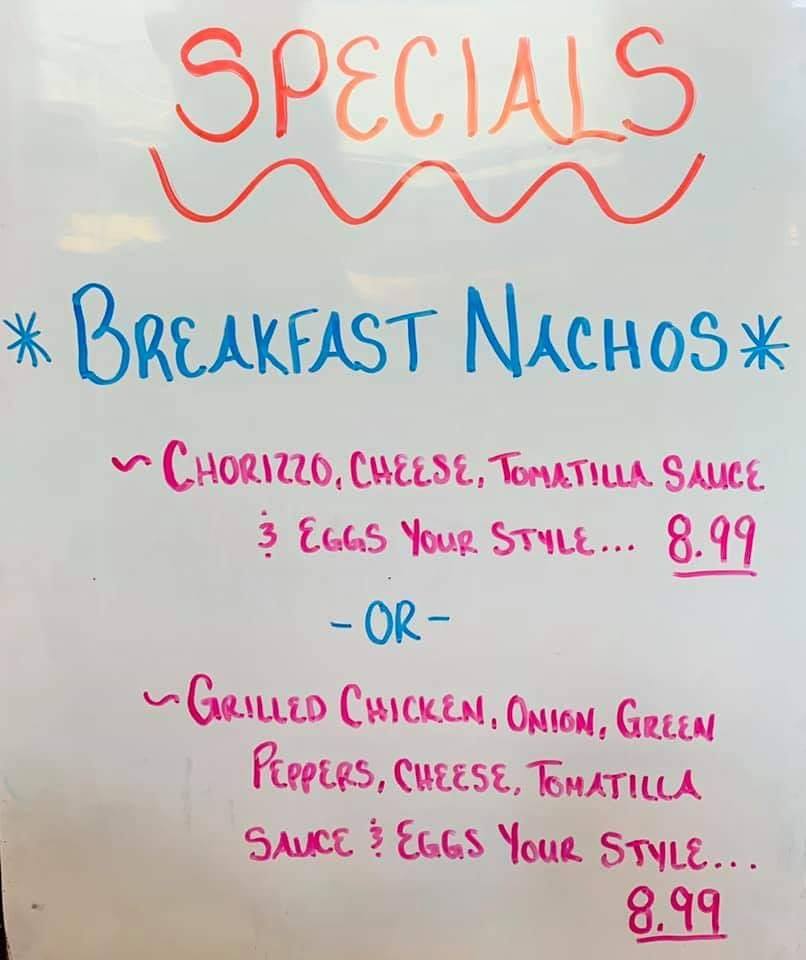 SPECIALS
* BREAKFAST NACHOS *
~ CHORIZZO, CHEESE, TOMATILLA SAUCE
& EGGS YOUR STYLE... 8.99
- OR -
~ GRILLED CHICKEN, ONION, GREEN
PEPPERS, CHEESE, TOMATILLA
SAUCE & EGGS YOUR STYLE...
8.99